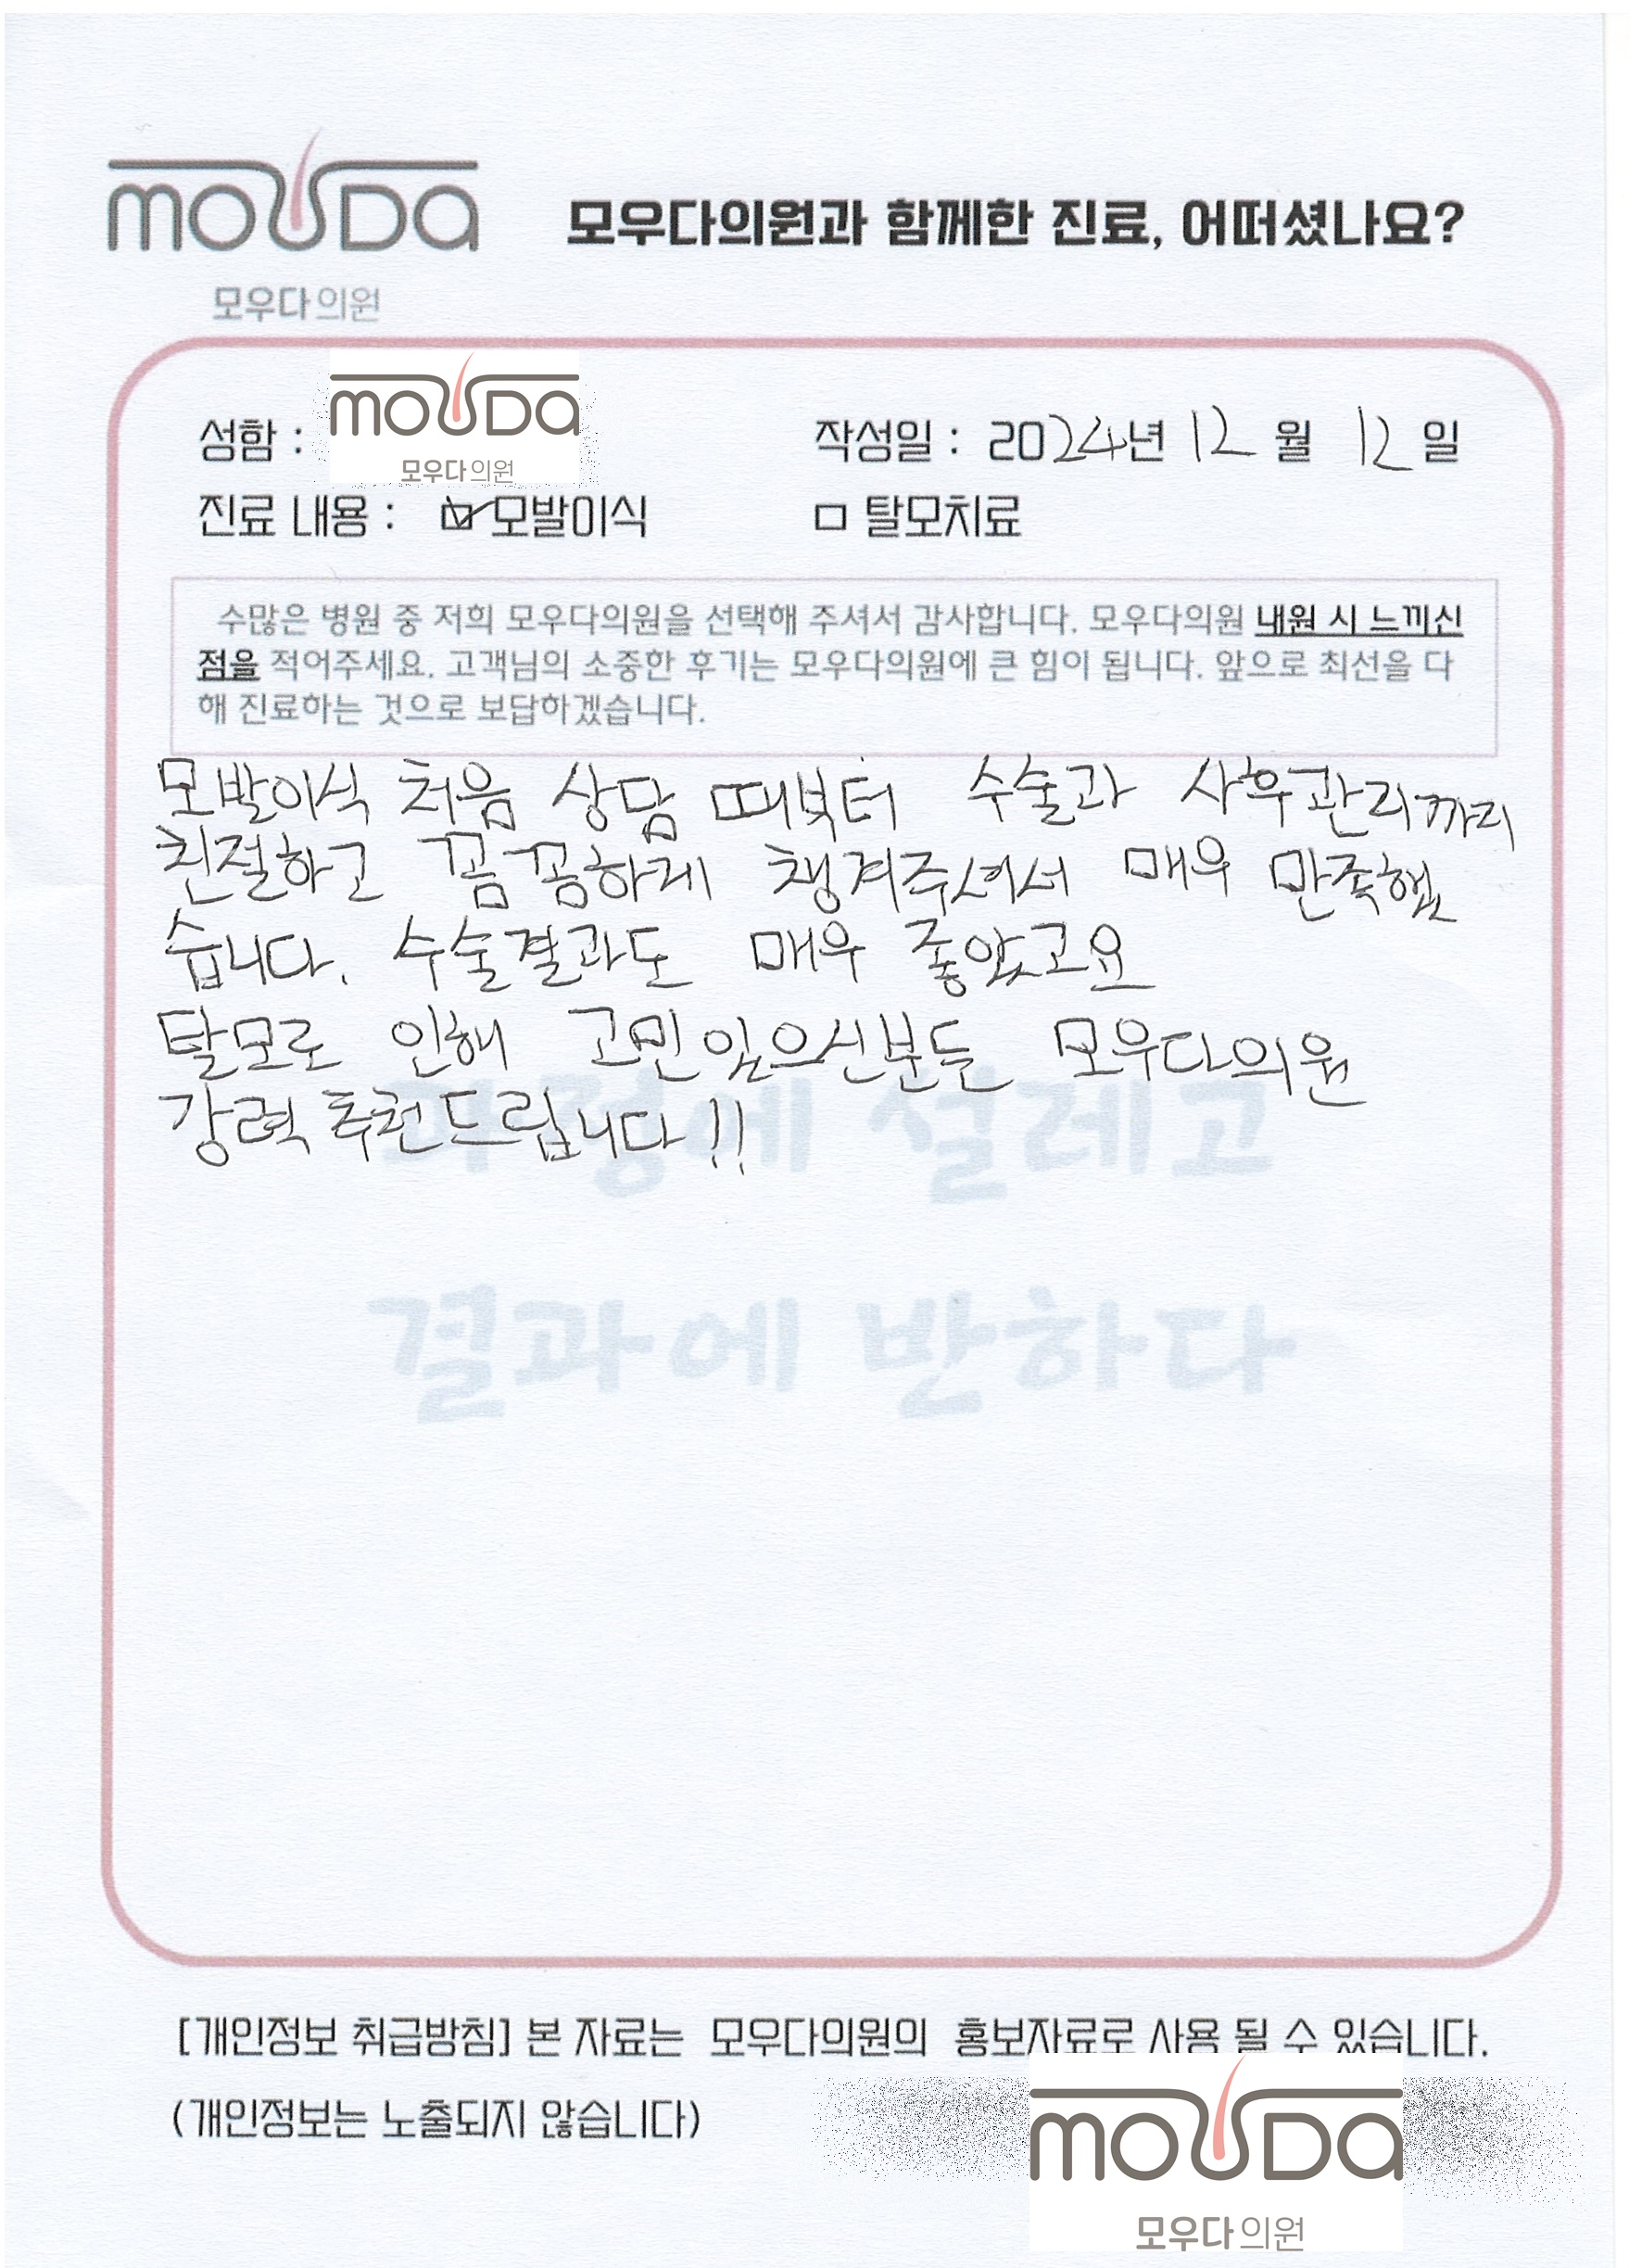 mouDa
모우다의원
모우다의원과 함께한 진료, 어떠셨나요?
mouDa
모우다의원
성함 :
작성일 : 2024년 12월 12일
진료 내용 : ☑ 모발이식 □ 탈모치료
수많은 병원 중 저희 모우다의원을 선택해 주셔서 감사합니다. 모우다의원 내원 시 느끼신
점을 적어주세요. 고객님의 소중한 후기는 모우다의원에 큰 힘이 됩니다. 앞으로 최선을 다
해 진료하는 것으로 보답하겠습니다.
모발이식 처음 상담 때부터 수술과 사후관리까지
친절하고 꼼꼼하게 챙겨주셔서 매우 만족했
습니다. 수술결과도 매우 좋았고요
탈모로 인해 고민있으신분들 모우다의원
강력 추천드립니다!!
과정에 설레고
결과에 반하다
[개인정보 취급방침] 본 자료는 모우다의원의 홍보자료로 사용 될 수 있습니다.
(개인정보는 노출되지 않습니다)
mouDa
모우다의원